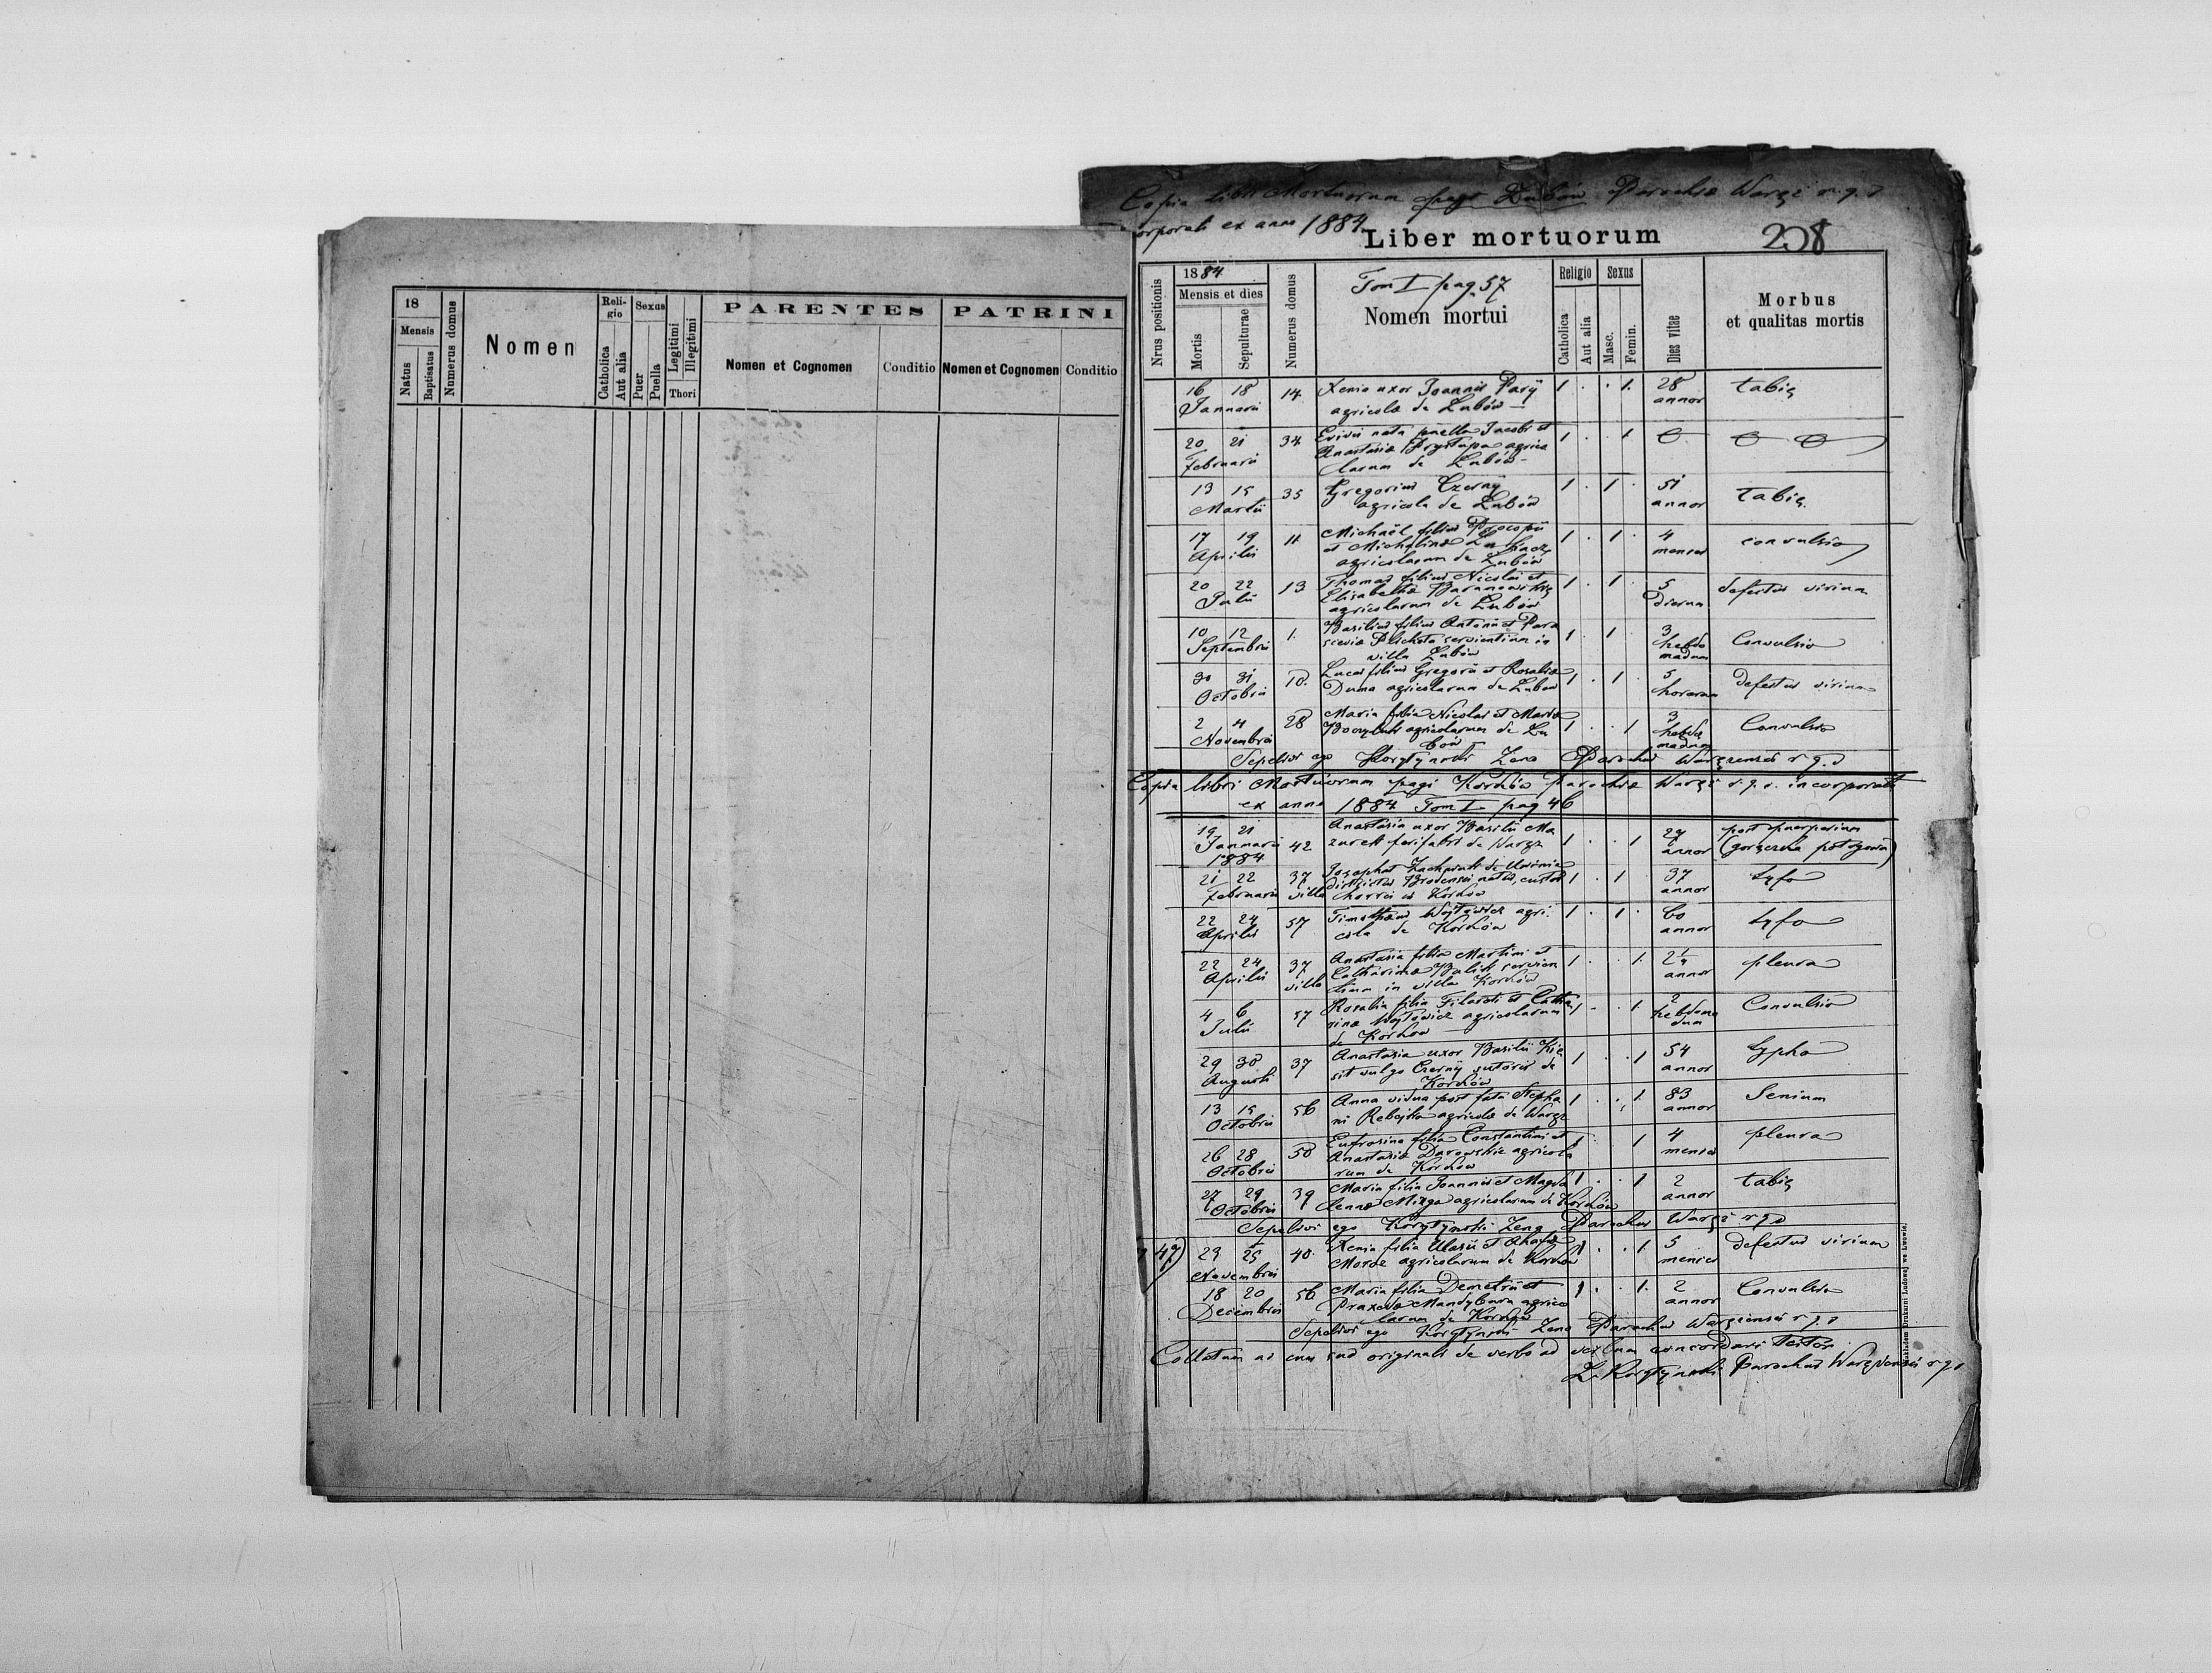 18
Mensis
Natus
Baptisatus
Numerus domus
Nomen
Religio
Catholica
Aut alia
Sexus
Puer
Puella
Legitimi
Illegitimi
Thori
PARENTES
Nomen et Cognomen
Conditio
PATRINI
Nomen et Cognomen
Conditio
Copia libri Mortuorum pagi Łubów Parochiæ Waręż r. g. c
ex anno 1884
Liber mortuorum
208
Nrus positionis
1884
Mensis et dies
Mortis
Sepulturae
Numerus domus
Tom I pag. 57
Nomen mortui
Religio
Catholica
Aut alia
Sexus
Masc.
Femin.
Dies vitae
Morbus
et qualitas mortis
16 18 14 Xenia uxor Joannis 1 . . 1. 28 tabis
Januarii agricolæ de Łubów annor
20 21 34 nata puella Jacobi et 1 . . 1
Februarii Anastasiæ Prystupa agrico
larum de Łubów
13 15 35 Gregorius Czernÿ 1 . 1 . 51 tabis
Martii agricola de Łubów annor
17 19 11 Michaël filius Procopii 1 . 1 . 4 convulsio
Aprilis et Michalinæ menses
agricolarum de Łubów
20 22 13 Thomas filius Nicolai et 1 . 1 . 5 defectus virium
Julii Elisabethæ dierum
agricolarum de Łubów
10 12 1. Basilius filius Antonii et Para 1 . 1 . 3 Convulsio
Septembris sceviæ servientium in hebdo
villa Łubów madum
30 31 10. Lucas filius Gregorii et Rosaliæ 1 . 1 . 5 Defectus virium
Octobris Duma agricolarum de Łubow horarum
2 4 28 Maria filia Nicolai et Mariæ 1 . . 1 3 Convulsio
Novembris agricolarum de Łu hebdo
bów madum
Sepelivi ego Korytynski Zeno Parochus r. g. c
Copia libri Mortuorum pagi Korków Parochiæ Waręż r. g. c. incorporati
ex anno 1884 Tom I pag 46
19 21 42 Anastasia uxor Basilii Ma 1 . . 1 29 post puerperium
Januarii zurek de Waręż annor
1884
21 22 37 Josaphat de 1 . 1 . 37 tyfo
Februarii villa districtus Brodensis natus, custos annor
22 24 57 Wojtowicz agri 1 . 1 . 60 tyfo
Aprilis cola de Korków annor
22 24 37 Anastasia filia Martini et 1 . . 1. 2¼ pleura
Aprilis villa Catharinæ servien annor
tium in villa Korków
4 6 57 Rosalia filia et Catha 1 . . 1 2 Convulsio
Julii rinæ Wojtowicz agricolarum hebdoma
de Korkow dum
29 30 37 Anastasia uxor Basilii 1 . . 1 54 typho
Augusti vulgo Czernÿ sutoris de annor
Korków
13 15 56 Anna vidua post fata Stepha 1 . . 1. 83 Senium
Octobris ni agricolæ de Waręż annor
26 28 50 Eufrosina filia Constantini et 1 . . 1 4 pleura
Octobris Anastasiæ agricola menses
rum de Korków
27 29 39 Maria filia Joannis et Magda 1 . . 1 2 tabis
Octobris lenæ agricolarum de Korków annor
Sepelivi ego Korytynski Zeno Parochus Waręż r g c
47) 23 25 40. Xenia filia et 1 . . 1. 5 defectus virium
Novembris agricolarum de Korków menses
18 20 56 Maria filia Demetrii et 1 . . 1. 2 Convulsio
Decembris Praxedæ Mandybura agrico annor
larum de Korków
Sepelivi ego Korytynski Zeno Parochus r. g. c
Collatum ac cum suo originali de verbo ad verbum concordare testor
Z. Korytynski Parochus r g c
Nakładem Drukarni Ludowej we Lwowie.